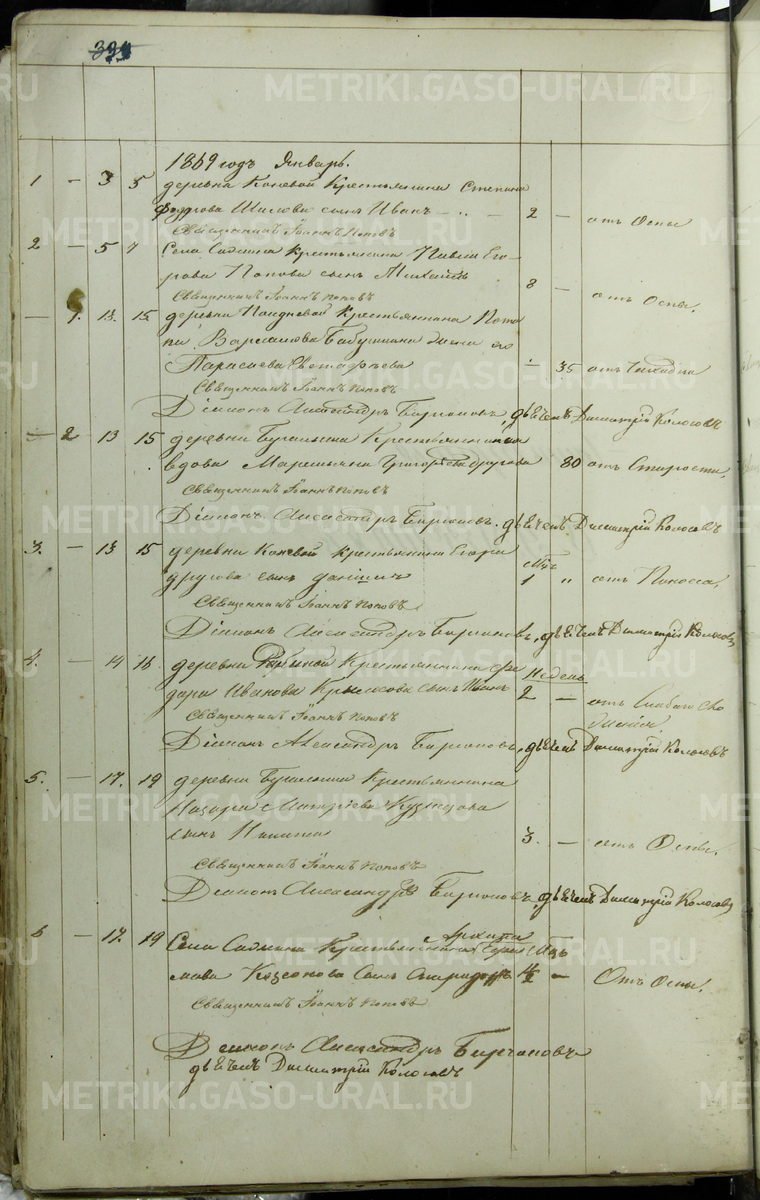 334
1869 годъ Январь.
1 — 3 5 деревни Коневой Крестьянина Степана
Федорова Шилова сынъ Иванъ — „ — 2 — отъ Оспы
Священникъ Іоаннъ Поповъ
2 — 5 7 Села крестьянина Павла Его-
рова Попова сынъ Михаилъ 8 — отъ Оспы.
Священникъ Іоаннъ Поповъ
— 1. 13. 15. деревни Крестьянина Пота
па Варламова Бабушкина жена его
Параскева — 35 отъ Чахотки
Священникъ Іоаннъ Поповъ
Діаконъ Александръ Бирюковъ, дьячекъ Димитрій Колосовъ
— 2 13 15 деревни Крестьянская
вдова Григорьева Другова 80 отъ Старости.
Священникъ Іоаннъ Поповъ
Діаконъ Александръ Бирюковъ. дьячекъ Димитрій Колосовъ
3. — 13 15 деревни Коневой крестьянина Егора
Другова сынъ Даніилъ 1 „ отъ Поноса.
Священникъ Іоаннъ Поповъ
Діаконъ Александръ Бирюковъ, дьячекъ Димитрій Колосовъ
4. — 14 16 деревни Крестьянина Фе
дора Иванова сынъ Иванъ Недель 2 — отъ Слабаго Сло
женія.
Священникъ Іоаннъ Поповъ
Діаконъ Александръ Бирюковъ, дьячекъ Димитрій Колосовъ
5. — 17. 19 деревни Крестьянина
Назара Матвѣева Кузнецова
сынъ Никита 3. — отъ Оспы.
Священникъ Іоаннъ Поповъ
Діаконъ Александръ Бирюковъ, дьячекъ Димитрій Колосовъ
6 — 17. 19 Села Крестьянина Архипа
сынъ — Отъ Оспы.
Священникъ Іоаннъ Поповъ
Діаконъ Александръ Бирюковъ
дьячекъ Димитрій Колосовъ
METRIKI.GASO-URAL.RU